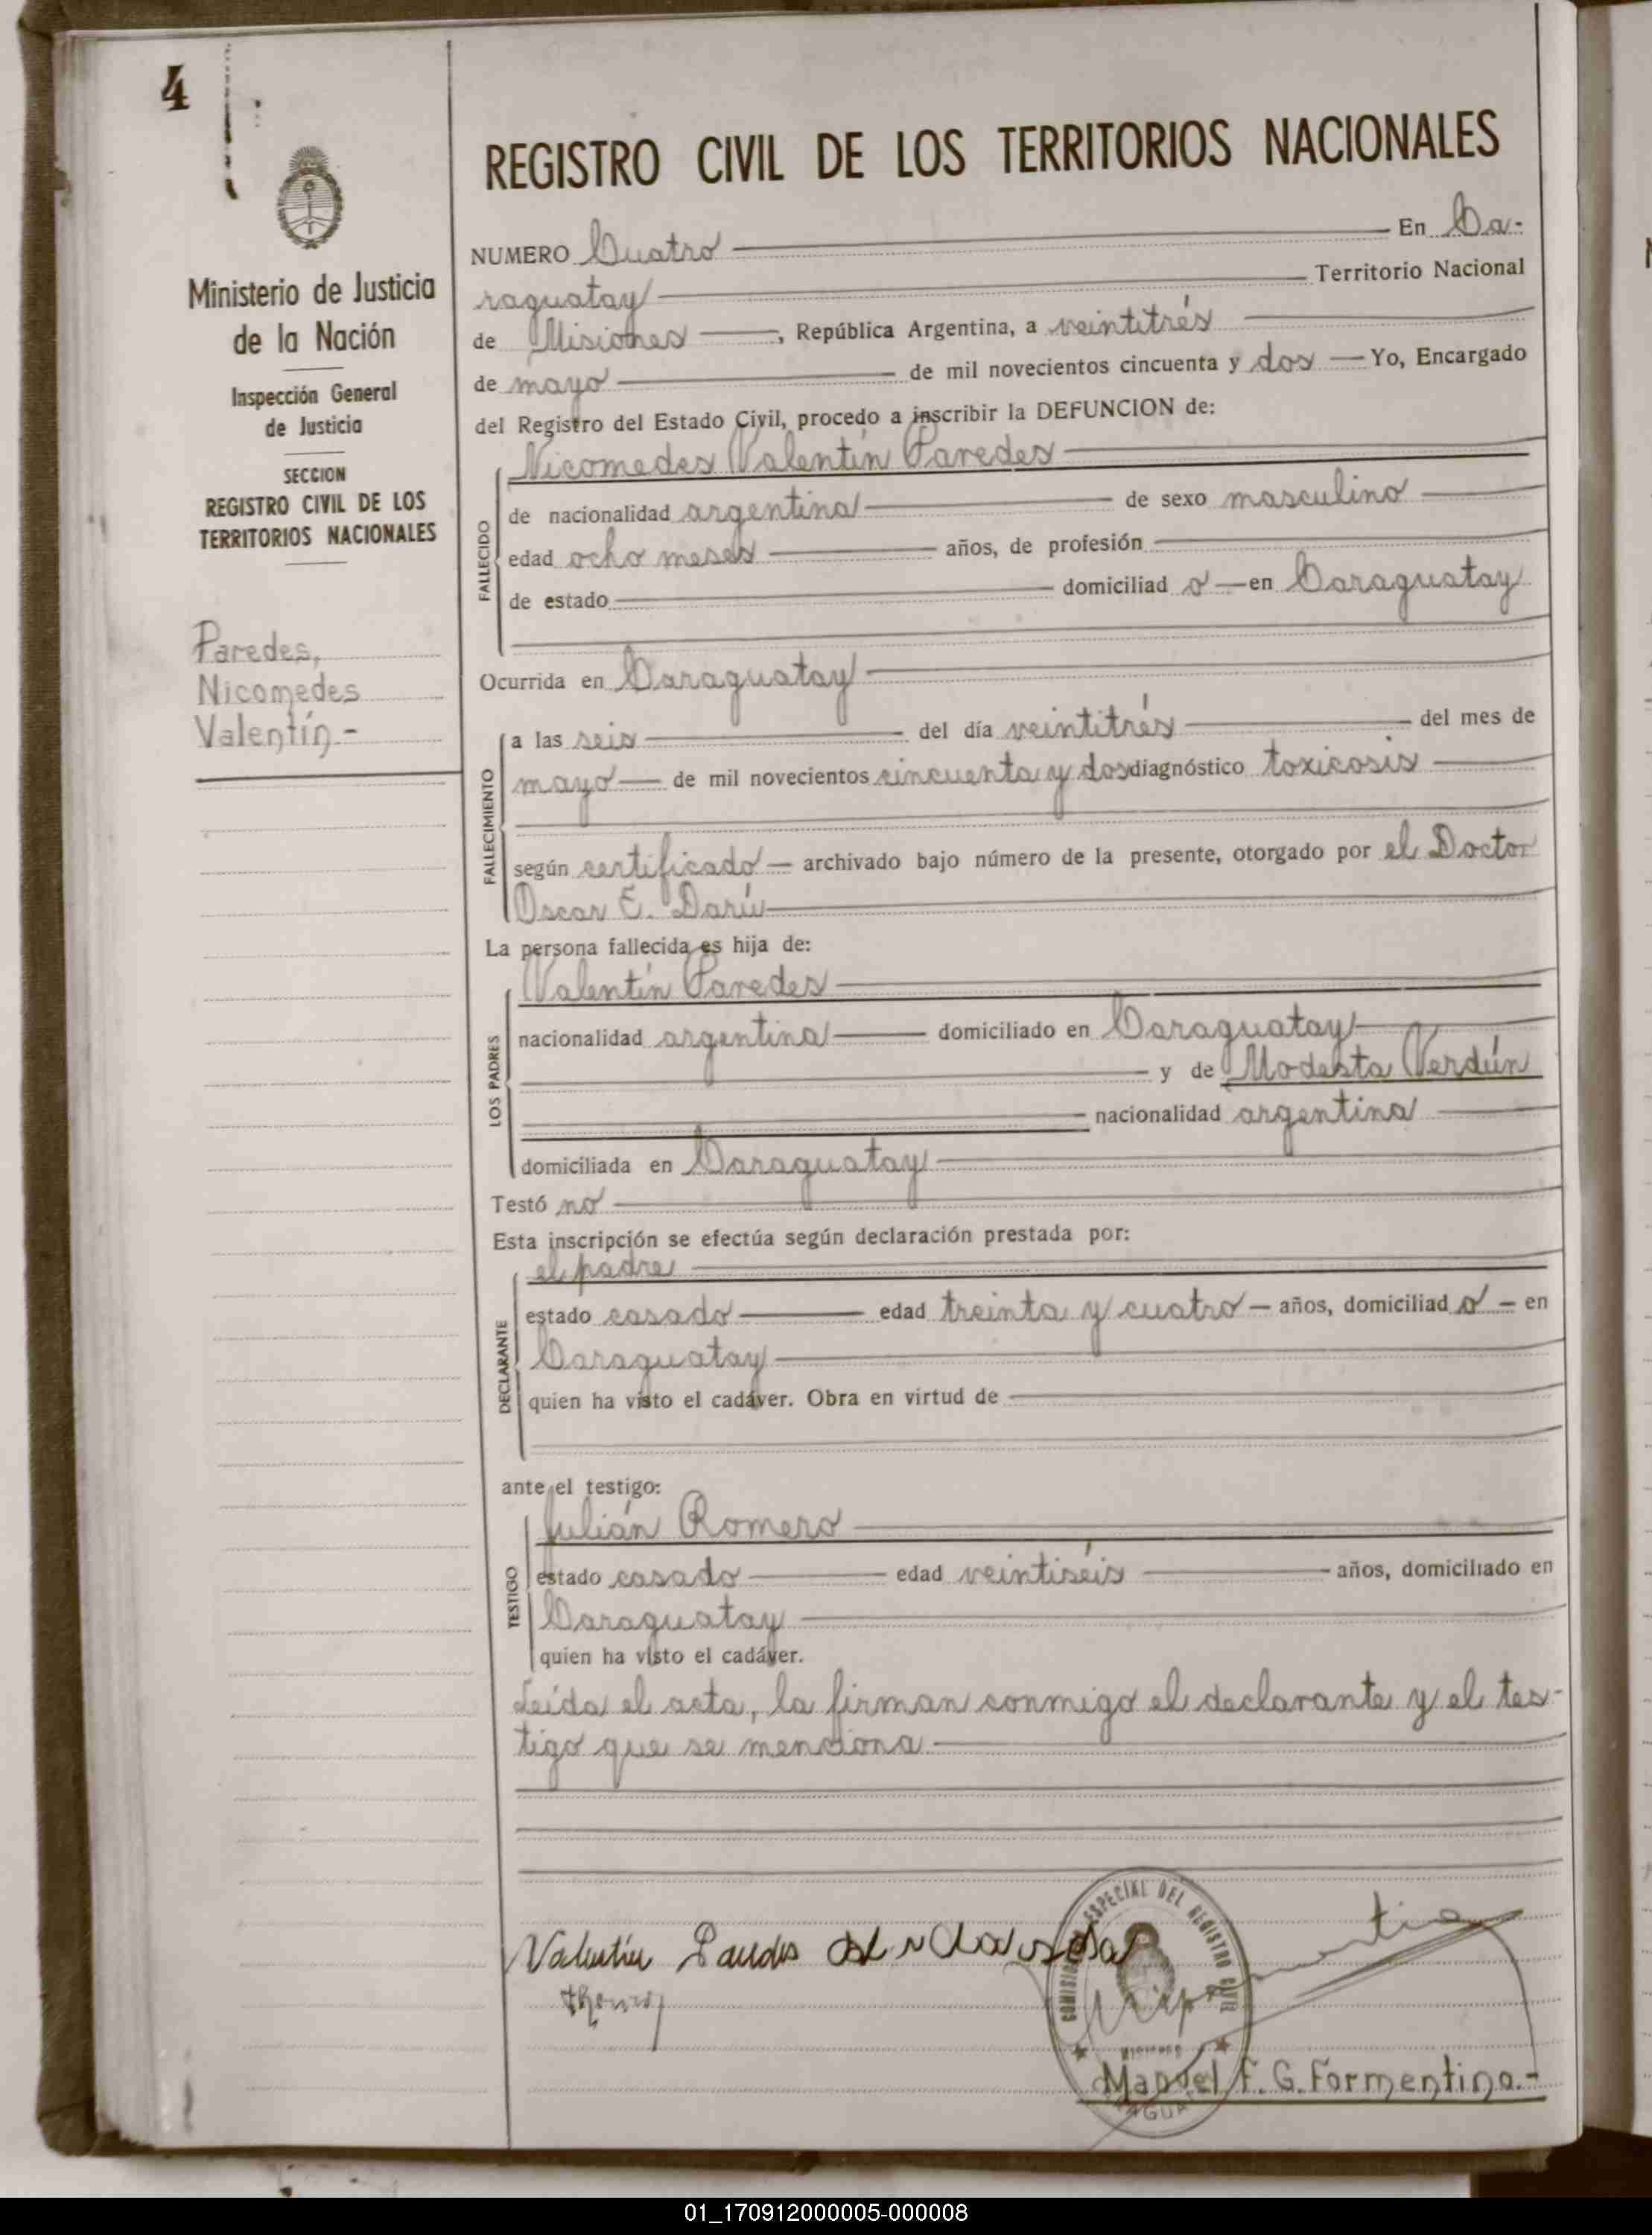 4
Ministerio de Justicia
de la Nación
Inspección General
de Justicia
SECCION
REGISTRO CIVIL DE LOS
TERRITORIOS NACIONALES
Paredes,
Nicomedes
Valentín.-
REGISTRO CIVIL DE LOS TERRITORIOS NACIONALES
NUMERO Cuatro En Ca-
raguatay Territorio Nacional
de Misiones, República Argentina, a veintitrés
de mayo de mil novecientos cincuenta y dos Yo, Encargado
del Registro del Estado Civil, procedo a inscribir la DEFUNCION de:
Nicomedes Valentín Paredes
FALLECIDO
de nacionalidad argentina de sexo masculino
edad ocho meses años, de profesión
de estado domiciliad o en Caraguatay
Ocurrida en Caraguatay
FALLECIMIENTO
a las seis del día veintitrés del mes de
mayo de mil novecientos cincuenta y dos diagnóstico toxicosis
según certificado archivado bajo número de la presente, otorgado por el Doctor
Oscar E. Darú
La persona fallecida es hija de:
LOS PADRES
Valentín Paredes
nacionalidad argentina domiciliado en Caraguatay
y de Modesta Verdún
nacionalidad argentina
domiciliada en Caraguatay
Testó no
Esta inscripción se efectúa según declaración prestada por:
DECLARANTE
el padre
estado casado edad treinta y cuatro años, domiciliad o en
Caraguatay
quien ha visto el cadáver. Obra en virtud de
ante el testigo:
TESTIGO
Julián Romero
estado casado edad veintiséis años, domiciliado en
Caraguatay
quien ha visto el cadáver.
Leída el acta, la firman conmigo el declarante y el tes-
tigo que se menciona
Valentin Paredes
ESPECIAL DEL REGISTRO CIVIL
MISIONES
Manuel F. G. Formentino.-
01_170912000005-000008